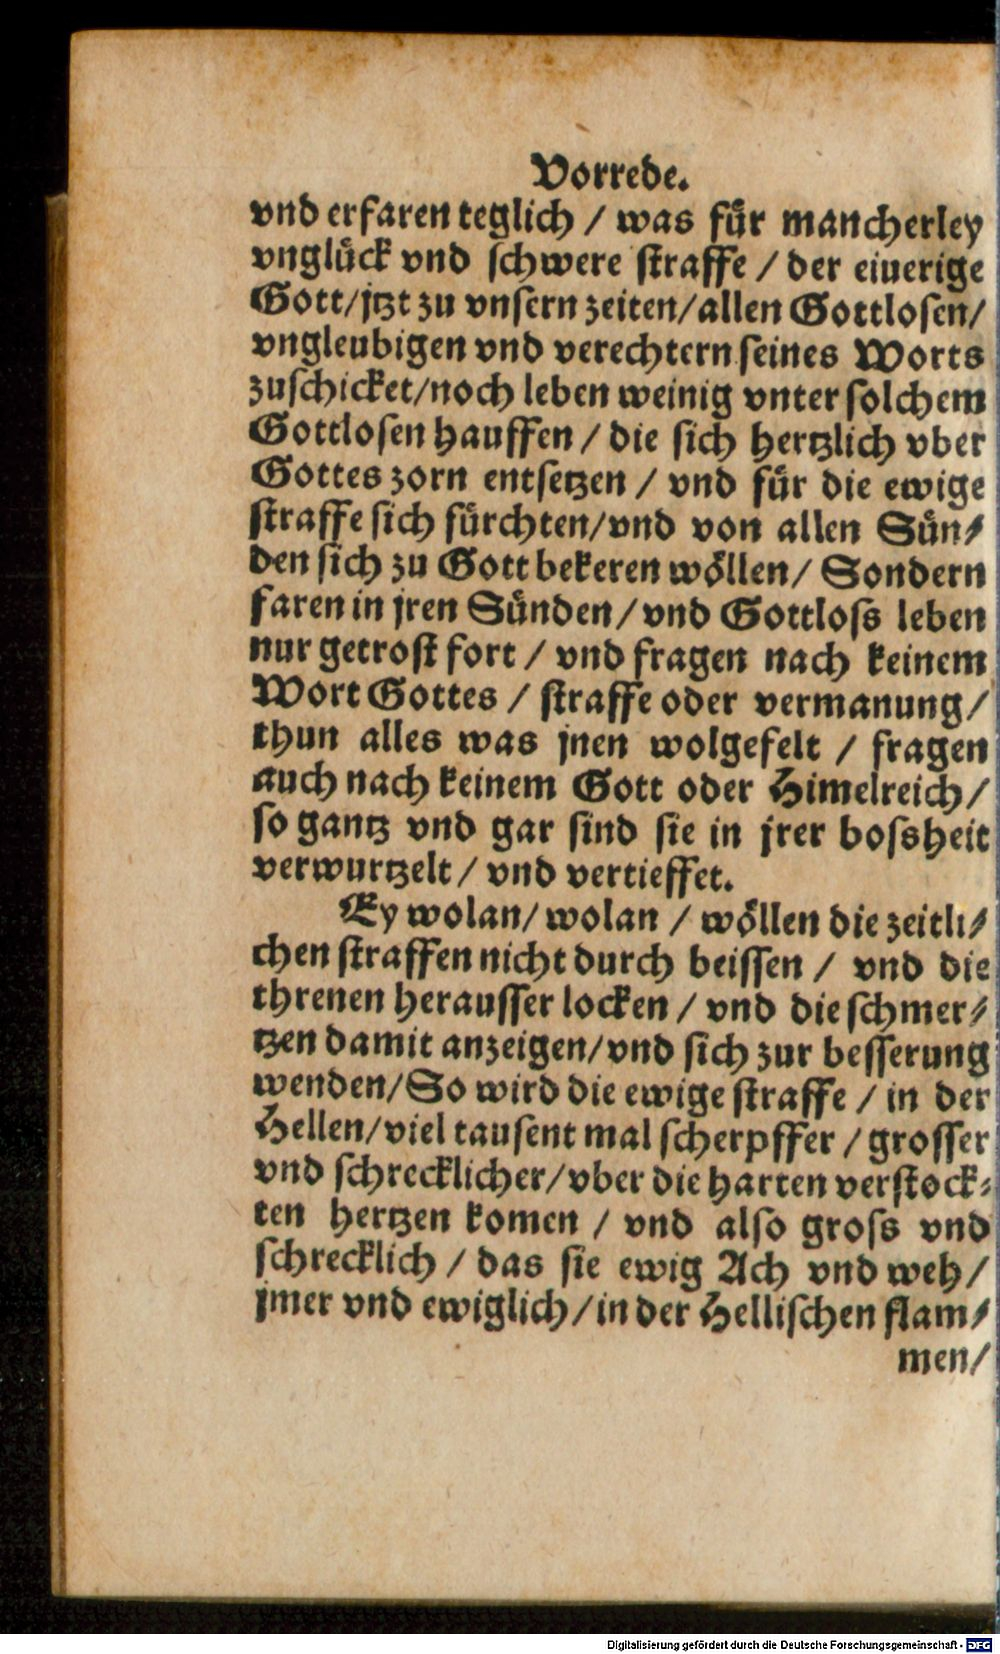 Vorrede.
vnd erfaren teglich / was fuͤr mancherley
vngluͤck vnd ſchwere ſtraffe / der eiuerige
Gott/jtzt zu vnſern zeiten/allen Gottloſen/
vngleubigen vnd verechtern ſeines Worts
zuſchicket/noch leben weinig vnter ſolchem
Gottloſen hauffen / die ſich hertzlich vber
Gottes zorn entſetzen / vnd fuͤr die ewige
ſtraffe ſich fuͤrchten/vnd von allen Suͤn⸗
den ſich zu Gott bekeren woͤllen/ Sondern
faren in jren Suͤnden/vnd Gottloſs leben
nur getroſt fort / vnd fragen nach keinem
Wort Gottes / ſtraffe oder vermanung/
thun alles was jnen wolgefelt / fragen
auch nach keinem Gott oder Himelreich/
ſo gantz vnd gar ſind ſie in jrer boſsheit
verwurtzelt/ vnd vertieffet.
Ey wolan/ wolan / woͤllen die zeitli⸗
chen ſtraffen nicht durch beiſſen / vnd die
threnen herauſſer locken / vnd die ſchmer⸗
tzen damit anzeigen/vnd ſich zur beſſerung
wenden/So wird die ewige ſtraffe / in der
Hellen/viel tauſent mal ſcherpffer / groſſer
vnd ſchrecklicher/vber die harten verſtock⸗
ten hertzen komen / vnd alſo groſs vnd
ſchrecklich / das ſie ewig Ach vnd weh/
jmer vnd ewiglich/in der Helliſchen flam⸗
men/
Digitalisierung gefördert durch die Deutsche Forschungsgemeinschaft - DFG